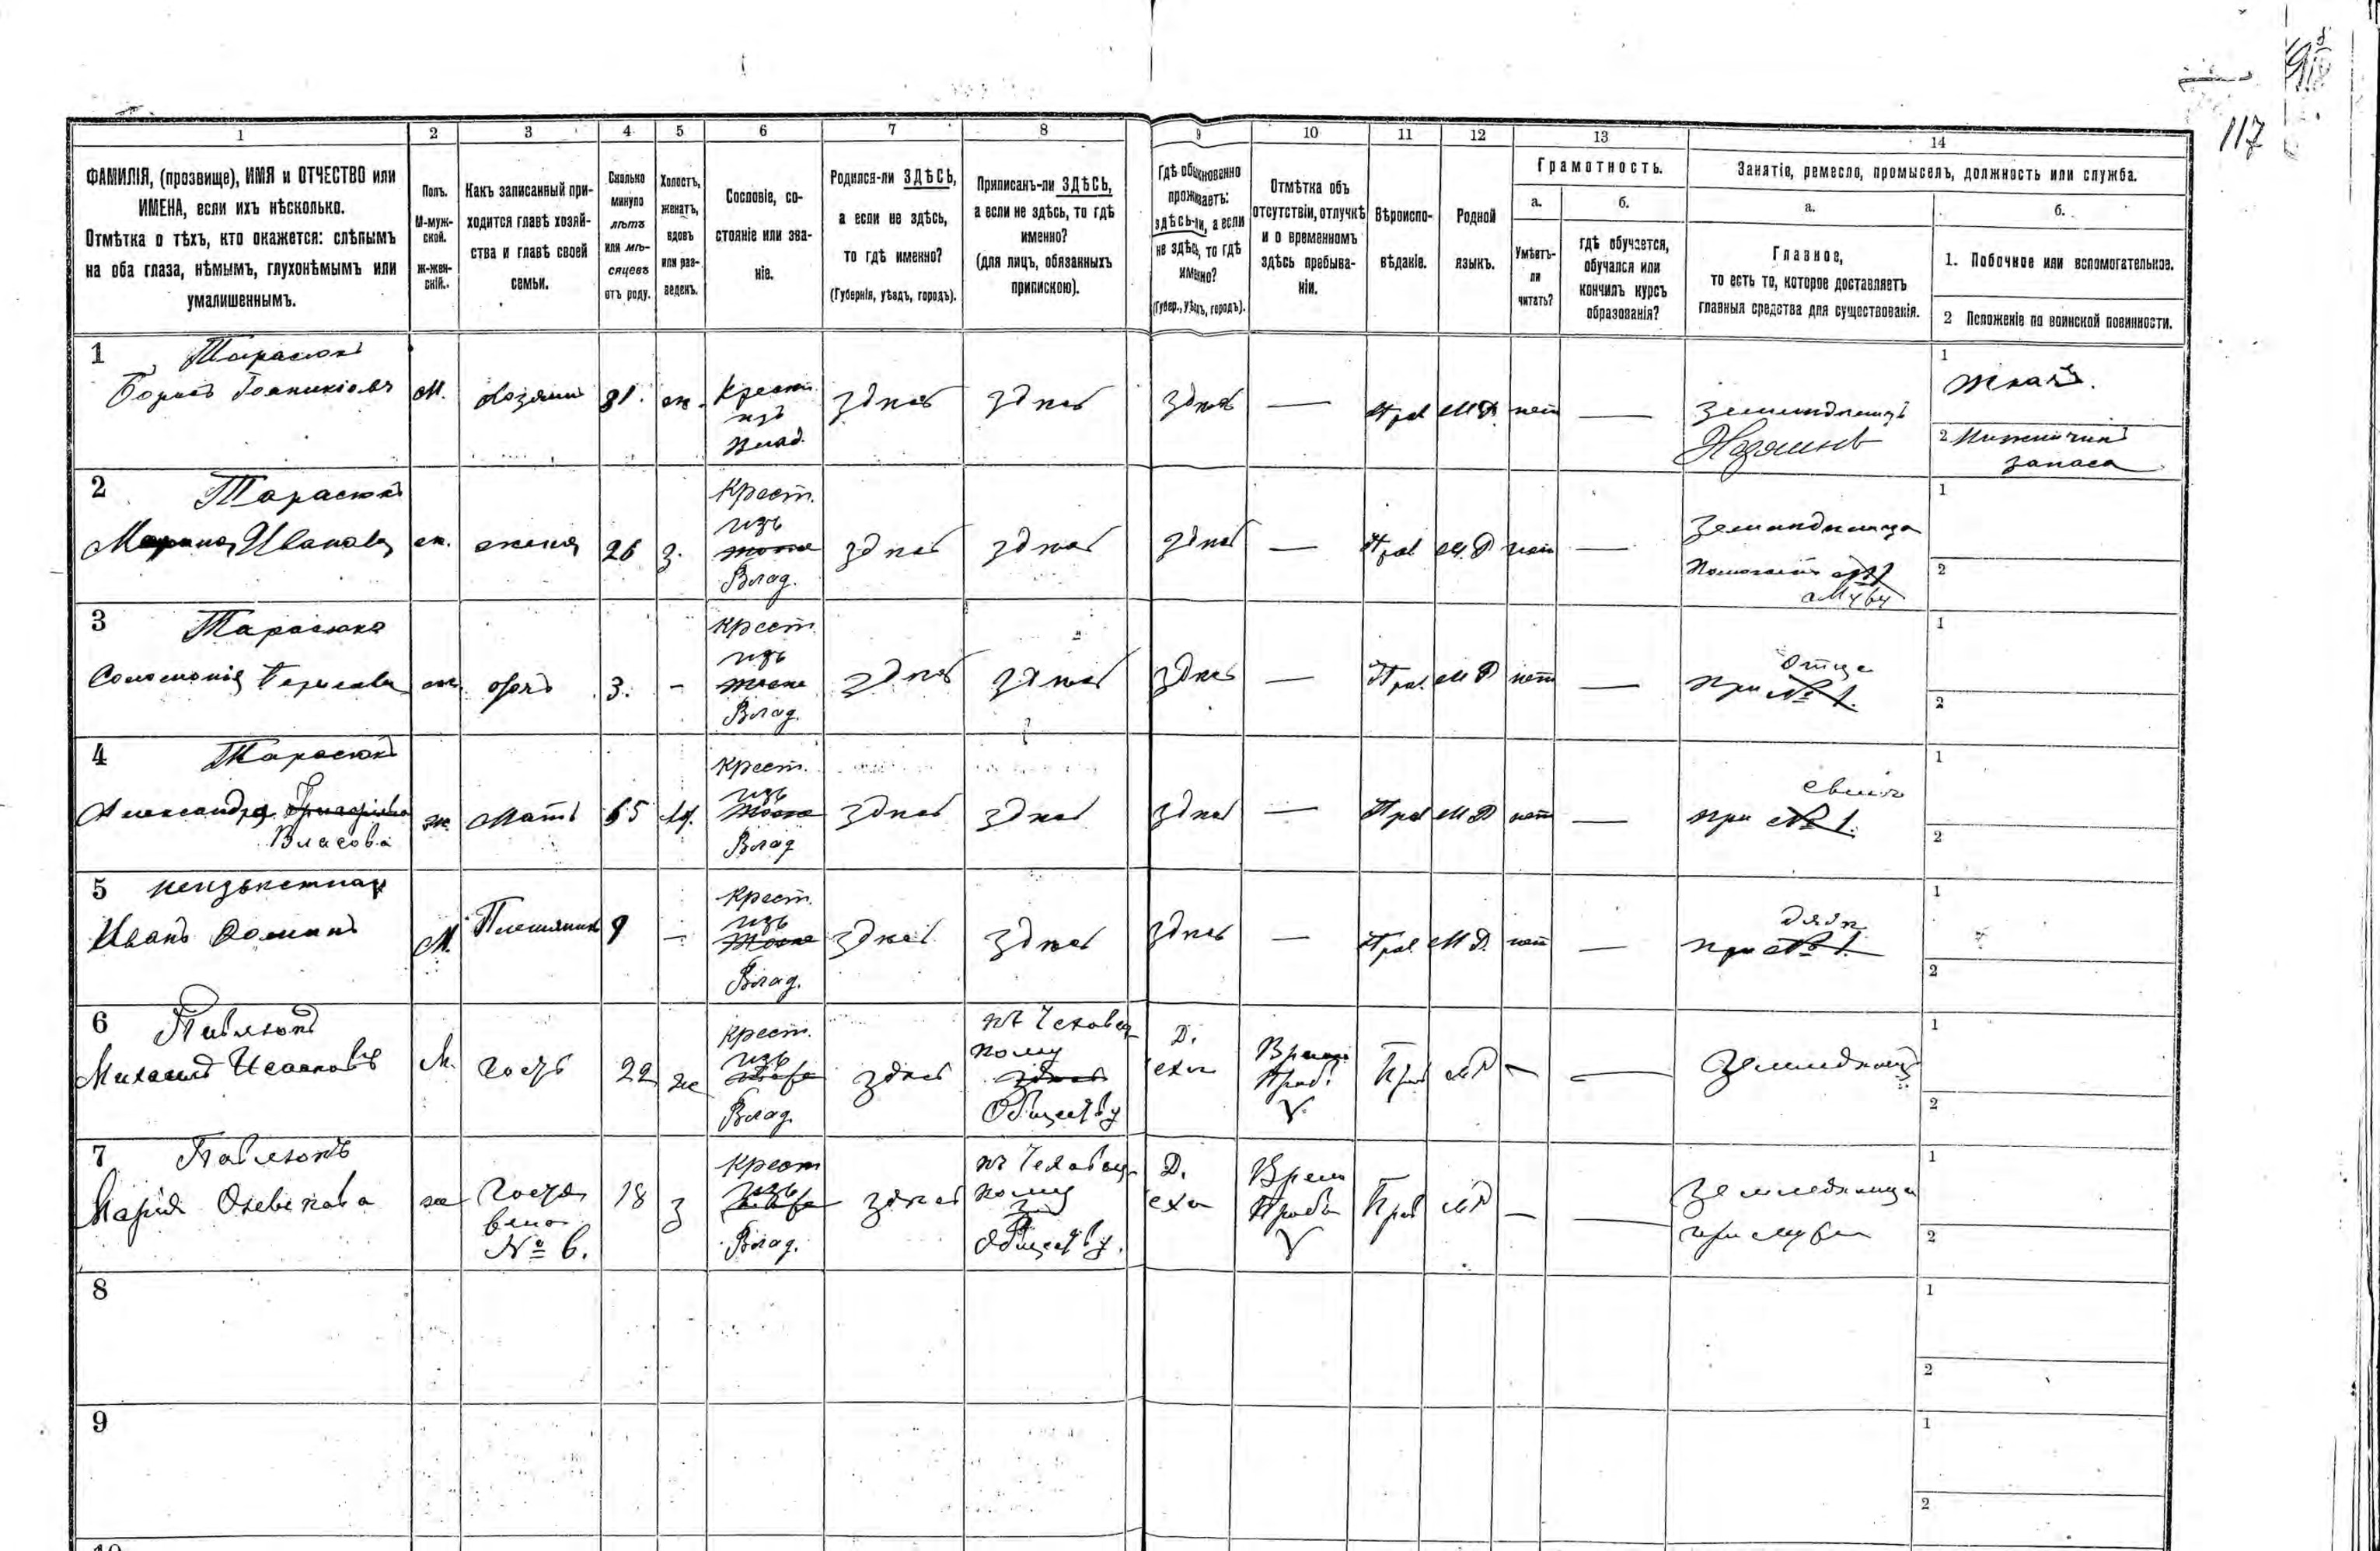 117
1
2
3
4
5
6
7
8
9
10
11
12
13
14
ФАМИЛІЯ, (прозвище), ИМЯ и ОТЧЕСТВО или
ИМЕНА, если ихъ нѣсколько.
Отмѣтка о тѣхъ, кто окажется: слѣпымъ
на оба глаза, нѣмымъ, глухонѣмымъ или
умалишеннымъ.
Полъ.
М-муж-
ской.
Ж-жен-
скій.
Какъ записанный при-
ходится главѣ хозяй-
ства и главѣ своей
семьи.
Сколько
минуло
лѣтъ
или мѣ-
сяцевъ
отъ роду.
Холостъ,
женатъ,
вдовъ
или раз-
веденъ.
Сословіе, со-
стояніе или зва-
ніе.
Родился-ли ЗДѢСЬ,
а если не здѣсь,
то гдѣ именно?
(Губернія, уѣздъ, городъ).
Приписанъ-ли ЗДѢСЬ,
а если не здѣсь, то гдѣ
именно?
(для лицъ, обязанныхъ
припискою).
Гдѣ обыкновенно
проживаетъ:
здѣсь-ли, а если
не здѣсь, то гдѣ
именно?
(Губер., уѣздъ, городъ).
Отмѣтка объ
отсутствіи, отлучкѣ
и о временномъ
здѣсь пребыва-
ніи.
Вѣроиспо-
вѣданіе.
Родной
языкъ.
Грамотность.
а.
Умѣетъ-
ли
читать?
б.
гдѣ обучается,
обучался или
кончилъ курсъ
образованія?
Занятіе, ремесло, промыселъ, должность или служба.
а.
Главное,
то есть то, которое доставляетъ
главныя средства для существованія.
б.
1. Побочное или вспомогательное.
2 Положеніе по воинской повинности.
1 Тарасюкъ
Борисъ Іоанникіевъ М. Хозяинъ 31. ж. Крест. изъ Влад. здѣсь здѣсь здѣсь — Прав М.Р. нѣт — земледѣлецъ
Хозяинъ
1 Ткачъ.
2 запаса
2 Тарасюкъ
Иванова ж. жена 26 з. Крест. изъ Влад. здѣсь здѣсь здѣсь — Прав М.Р нѣт — Земледѣлица
мужу
1
2
3 Тарасюкъ
Соломонія Борисова ж. дочь 3. - Крест. изъ Влад. здѣсь здѣсь здѣсь — Прав. М Р нѣт — при № 1. отце
1
2
4 Тарасюкъ
Александра
Власова ж. мать 65 Крест. изъ Влад здѣсь здѣсь здѣсь — Прав М Р нѣт — при № 1. сынѣ
1
2
5
Иванъ М. Племянник 9 - Крест. изъ Влад. здѣсь здѣсь здѣсь — Прав М Р. нѣт — при № 1. дядѣ
1
2
6 Павлюкъ
Михаилъ Исааковъ М. гость 22 ж Крест. изъ Влад. здѣсь
Обществу Д. Врем. Преб. Пр МР — — Земледѣлецъ
1
2
7 Павлюкъ
Марія ж гостья
№ 6. 18 з Крест изъ Влад. здѣсь
Обществу. Д. Врем Преб Прав МР — — Земледѣлица
при мужѣ
1
2
8
1
2
9
1
2